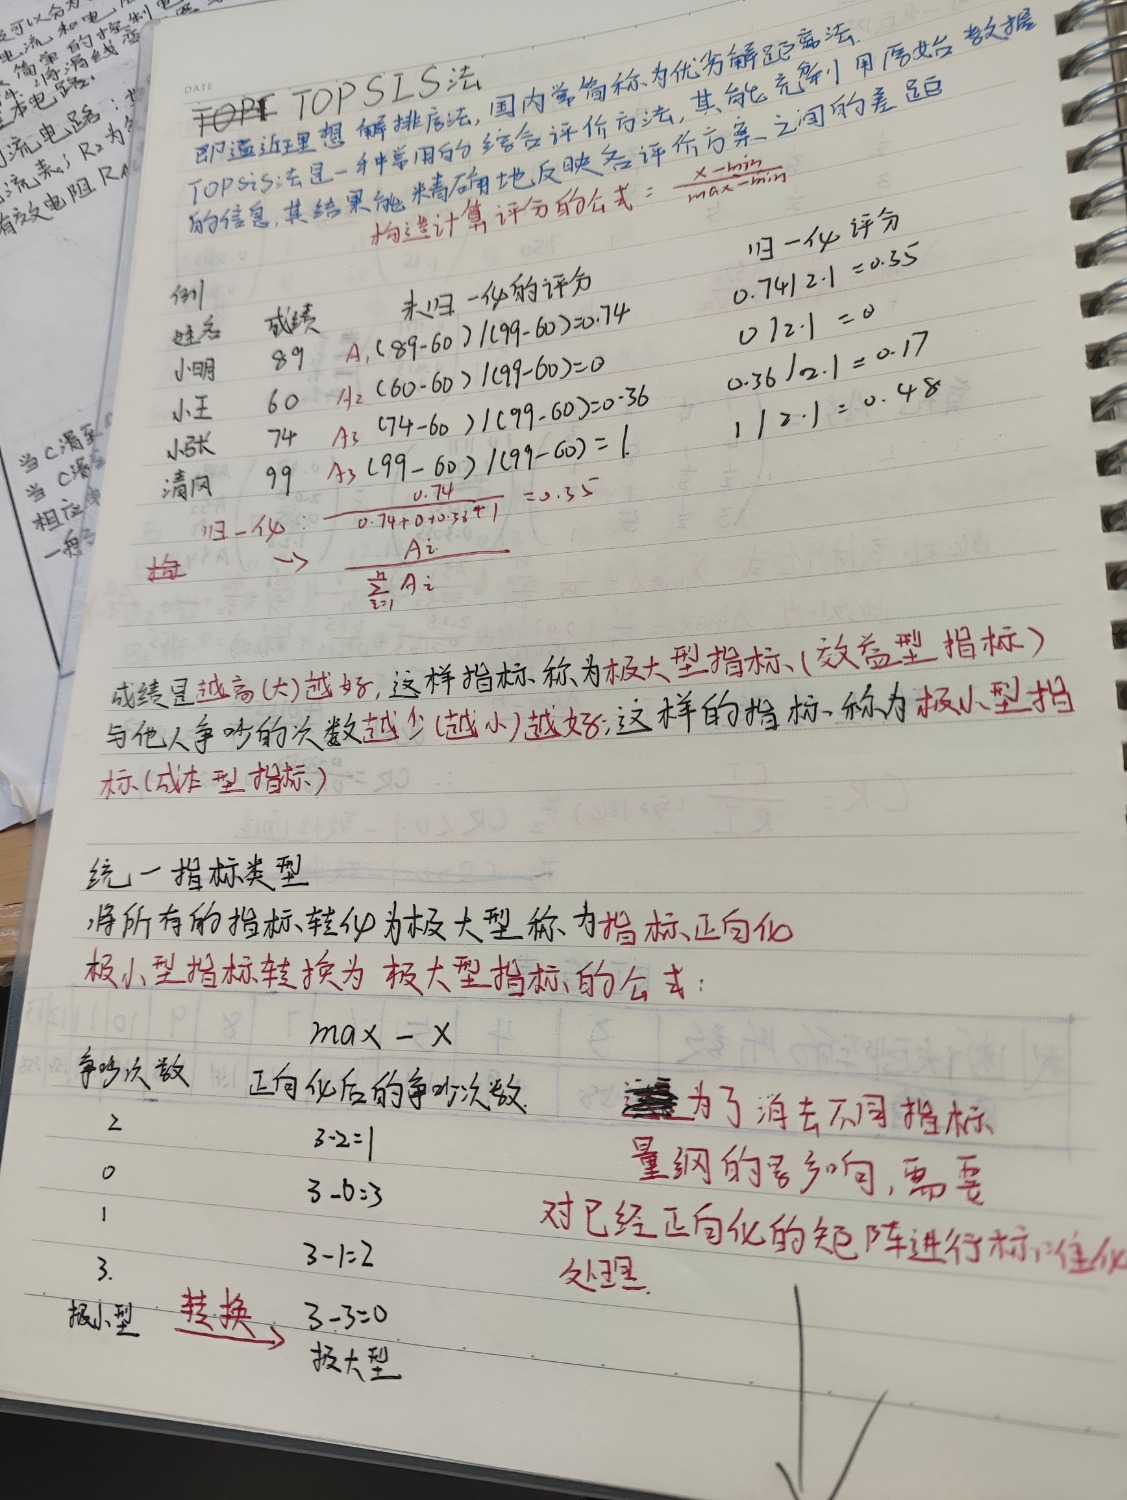 DATE
TOPSIS法
即逼近理想解排序法,国内常简称为优劣解距离法.
TOPSIS法是一种常用的综合评价方法,其能充分利用原始数据
的信息,其结果能精确地反映各评价方案之间的差距
构造计算评分的公式 = x-min / max-min
例
姓名 成绩 未归一化的评分 归一化评分
小明 89 A₁ (89-60)/(99-60)=0.74 0.74/2.1=0.35
小王 60 A₂ (60-60)/(99-60)=0 0/2.1=0
小张 74 A₃ (74-60)/(99-60)=0.36 0.36/2.1=0.17
清风 99 A₃ (99-60)/(99-60)=1 1/2.1=0.48
归一化: 0.74 / 0.74+0+0.36+1 =0.35
→ Ai / Σⁿᵢ₌₁ Ai
成绩是越高(大)越好,这样指标称为极大型指标(效益型指标)
与他人争吵的次数越少(越小)越好,这样的指标称为极小型指
标(成本型指标)
统一指标类型
将所有的指标转化为极大型称为指标正向化
极小型指标转换为极大型指标的公式:
max - x
争吵次数 正向化后的争吵次数
2 3-2=1
0 3-0=3
1 3-1=2
3. 3-3=0
极小型 转换→ 极大型
为了消去不同指标
量纲的影响,需要
对已经正向化的矩阵进行标准化
处理.